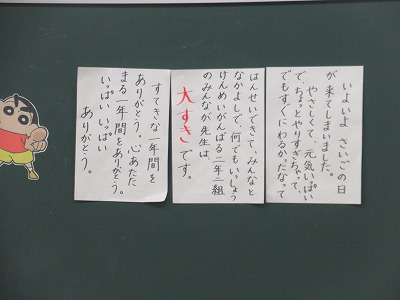 いよいよ さいごの日
が来てしまいました。
やさしくて、元気いっぱい
で、ちょっとやりすぎちゃって、
でもすぐにわるかったなって
はんせいできて、みんなと
なかよしで、何でもいっしょう
けんめいがんばる二年二組
のみんなが先生は、
大すきです。
すてきな一年間を
ありがとう。心あたた
まる一年間をありがとう。
いっぱい いっぱい
ありがとう。